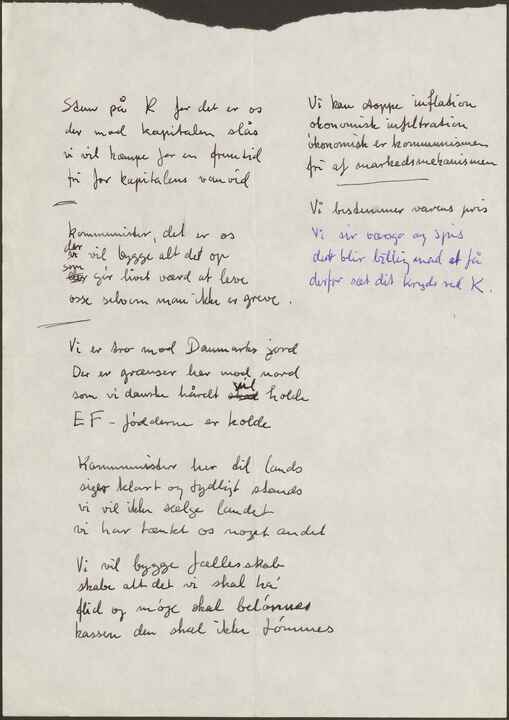 Stem på K for det er os
der mod kapitalen slås
vi vil kæmpe for en fremtid
fri for kapitalens vanvid
Kommunister, det er os
der vil bygge alt det op
som gør livet værd at leve
osse selvom man ikke er greve.
Vi er tro mod Danmarks jord
Der er grænser her mod nord
som vi danske hårdt vil holde
EF-fødderne er kolde
Kommunister her til lands
siger klart og tydligt stands
vi vil ikke sælge landet
vi har tænkt os noget andet
Vi vil bygge fællesskab
skabe alt det vi skal ha'
flid og møje skal belønnes
kassen den skal ikke tømmes
Vi kan stoppe inflation
økonomisk infiltration
økonomisk er kommunismen
fri af markedsmekanismen
Vi bestemmer varens pris
Vi sir værsgo og spis
det blir billig mad at få
derfor sæt dit kryds ved K.